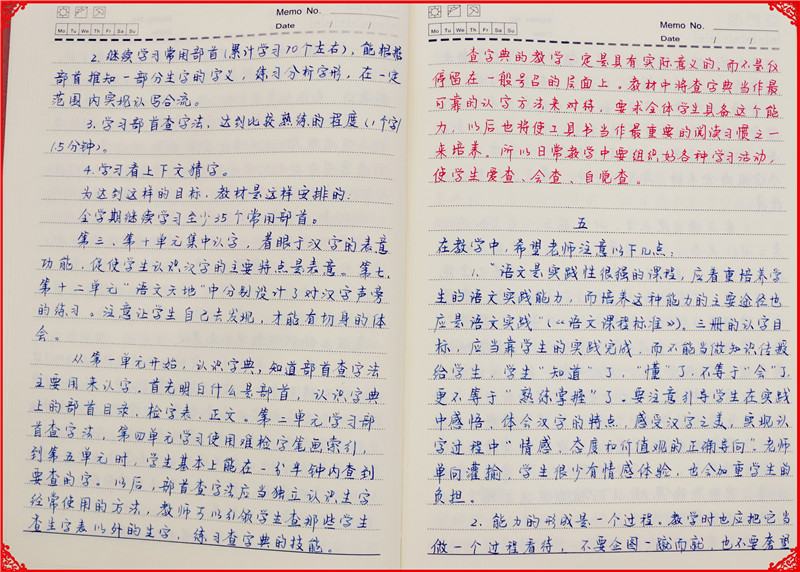 Memo No.
Mo Tu We Th Fr Sa Su
Date / /
2. 继续学习常用部首（累计学习70个左右），能根据
部首推知一部分生字的字义，练习分析字形，在一定
范围内实现认写合流。
3. 学习部首查字法，达到比较熟练的程度（1个字/
1.5分钟）。
4. 学习看上下文猜字。
为达到这样的目标，教材是这样安排的：
全学期继续学习至少35个常用部首。
第三、第十单元集中认字，着眼于汉字的表意
功能，促使学生认识汉字的主要特点是表意。第七、
第十二单元“语文天地”中分别设计了对汉字声旁
的练习。注意让学生自己去发现，才能有切身的体
会。
从第一单元开始，认识字典，知道部首查字法
主要用来认字。首先明白什么是部首，认识字典
上的部首目录、检字表、正文。第二单元学习部
首查字法，第四单元学习使用难检字笔画索引，
到第五单元时，学生基本上能在一分半钟内查到
要查的字。以后，部首查字法应当独立认识生字
经常使用的方法，教师可以引领学生查那些学生
查生字表以外的生字，练习查字典的技能。
Memo No.
Mo Tu We Th Fr Sa Su
Date / /
查字典的教学一定是具有实际意义的，而不是仅
停留在一般号召的层面上。教材中将查字典当作最
可靠的认字方法来对待，要求全体学生具备这个能
力，以后也将使工具书当作最重要的阅读习惯之一
来培养。所以日常教学中要组织好各种学习活动，
使学生爱查、会查、自觉查。
五
在教学中，希望老师注意以下几点：
1. “语文是实践性很强的课程，应着重培养学
生的语文实践能力，而培养这种能力的主要途径也
应是语文实践”（《语文课程标准》）。三册的认字目
标，应当靠学生的实践完成，而不能当做知识传授
给学生，学生“知道”了，“懂”了，不等于“会”了，
更不等于“熟练掌握”了。要注意引导学生在实践
中感悟、体会汉字的特点，感受汉字之美，实现认
字过程中“情感、态度和价值观的正确导向”。老师
单向灌输，学生很少有情感体验，也会加重学生的
负担。
2. 能力的形成是一个过程。教学时也应把它当
做一个过程看待，不要企图一蹴而就，也不要奢望